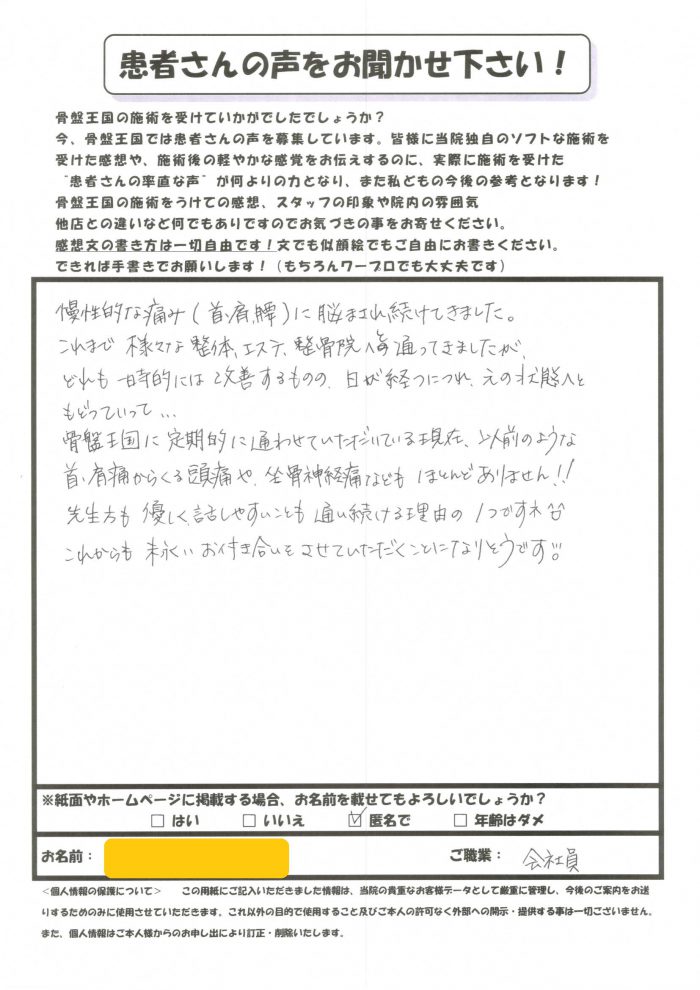 患者さんの声をお聞かせ下さい！
骨盤王国の施術を受けていかがでしたでしょうか？
今、骨盤王国では患者さんの声を募集しています。皆様に当院独自のソフトな施術を
受けた感想や、施術後の軽やかな感覚をお伝えするのに、実際に施術を受けた
“患者さんの率直な声”が何よりの力となり、また私どもの今後の参考となります！
骨盤王国の施術をうけての感想、スタッフの印象や院内の雰囲気
他店との違いなど何でもありですのでお気づきの事をお寄せください。
感想文の書き方は一切自由です！文でも似顔絵でもご自由にお書きください。
できれば手書きでお願いします！（もちろんワープロでも大丈夫です）
慢性的な痛み（首、肩、腰）に脳まされ続けてきました。
これまで様々な整体、エステ、整骨院へ通ってきましたが、
どれも一時的には改善するものの、日が経つにつれ、元の状態へと
もどっていって…
骨盤王国に定期的に通わせていただいている現在、以前のような
首、肩痛からくる頭痛や、坐骨神経痛なども ほとんどありません!!
先生方も優しく話しやすいことも通い続ける理由の1つですネ
これからも末永いお付き合いをさせていただくことになりそうです!!
※紙面やホームページに掲載する場合、お名前を載せてもよろしいでしょうか？
□ はい □ いいえ ☑ 匿名で □ 年齢はダメ
お名前： ご職業： 会社員
＜個人情報の保護について＞ この用紙にご記入いただきました情報は、当院の貴重なお客様データとして厳重に管理し、今後のご案内をお送
りするためのみに使用させていただきます。これ以外の目的で使用すること及びご本人の許可なく外部への開示・提供する事は一切ございません。
また、個人情報はご本人様からのお申し出により訂正・削除いたします。